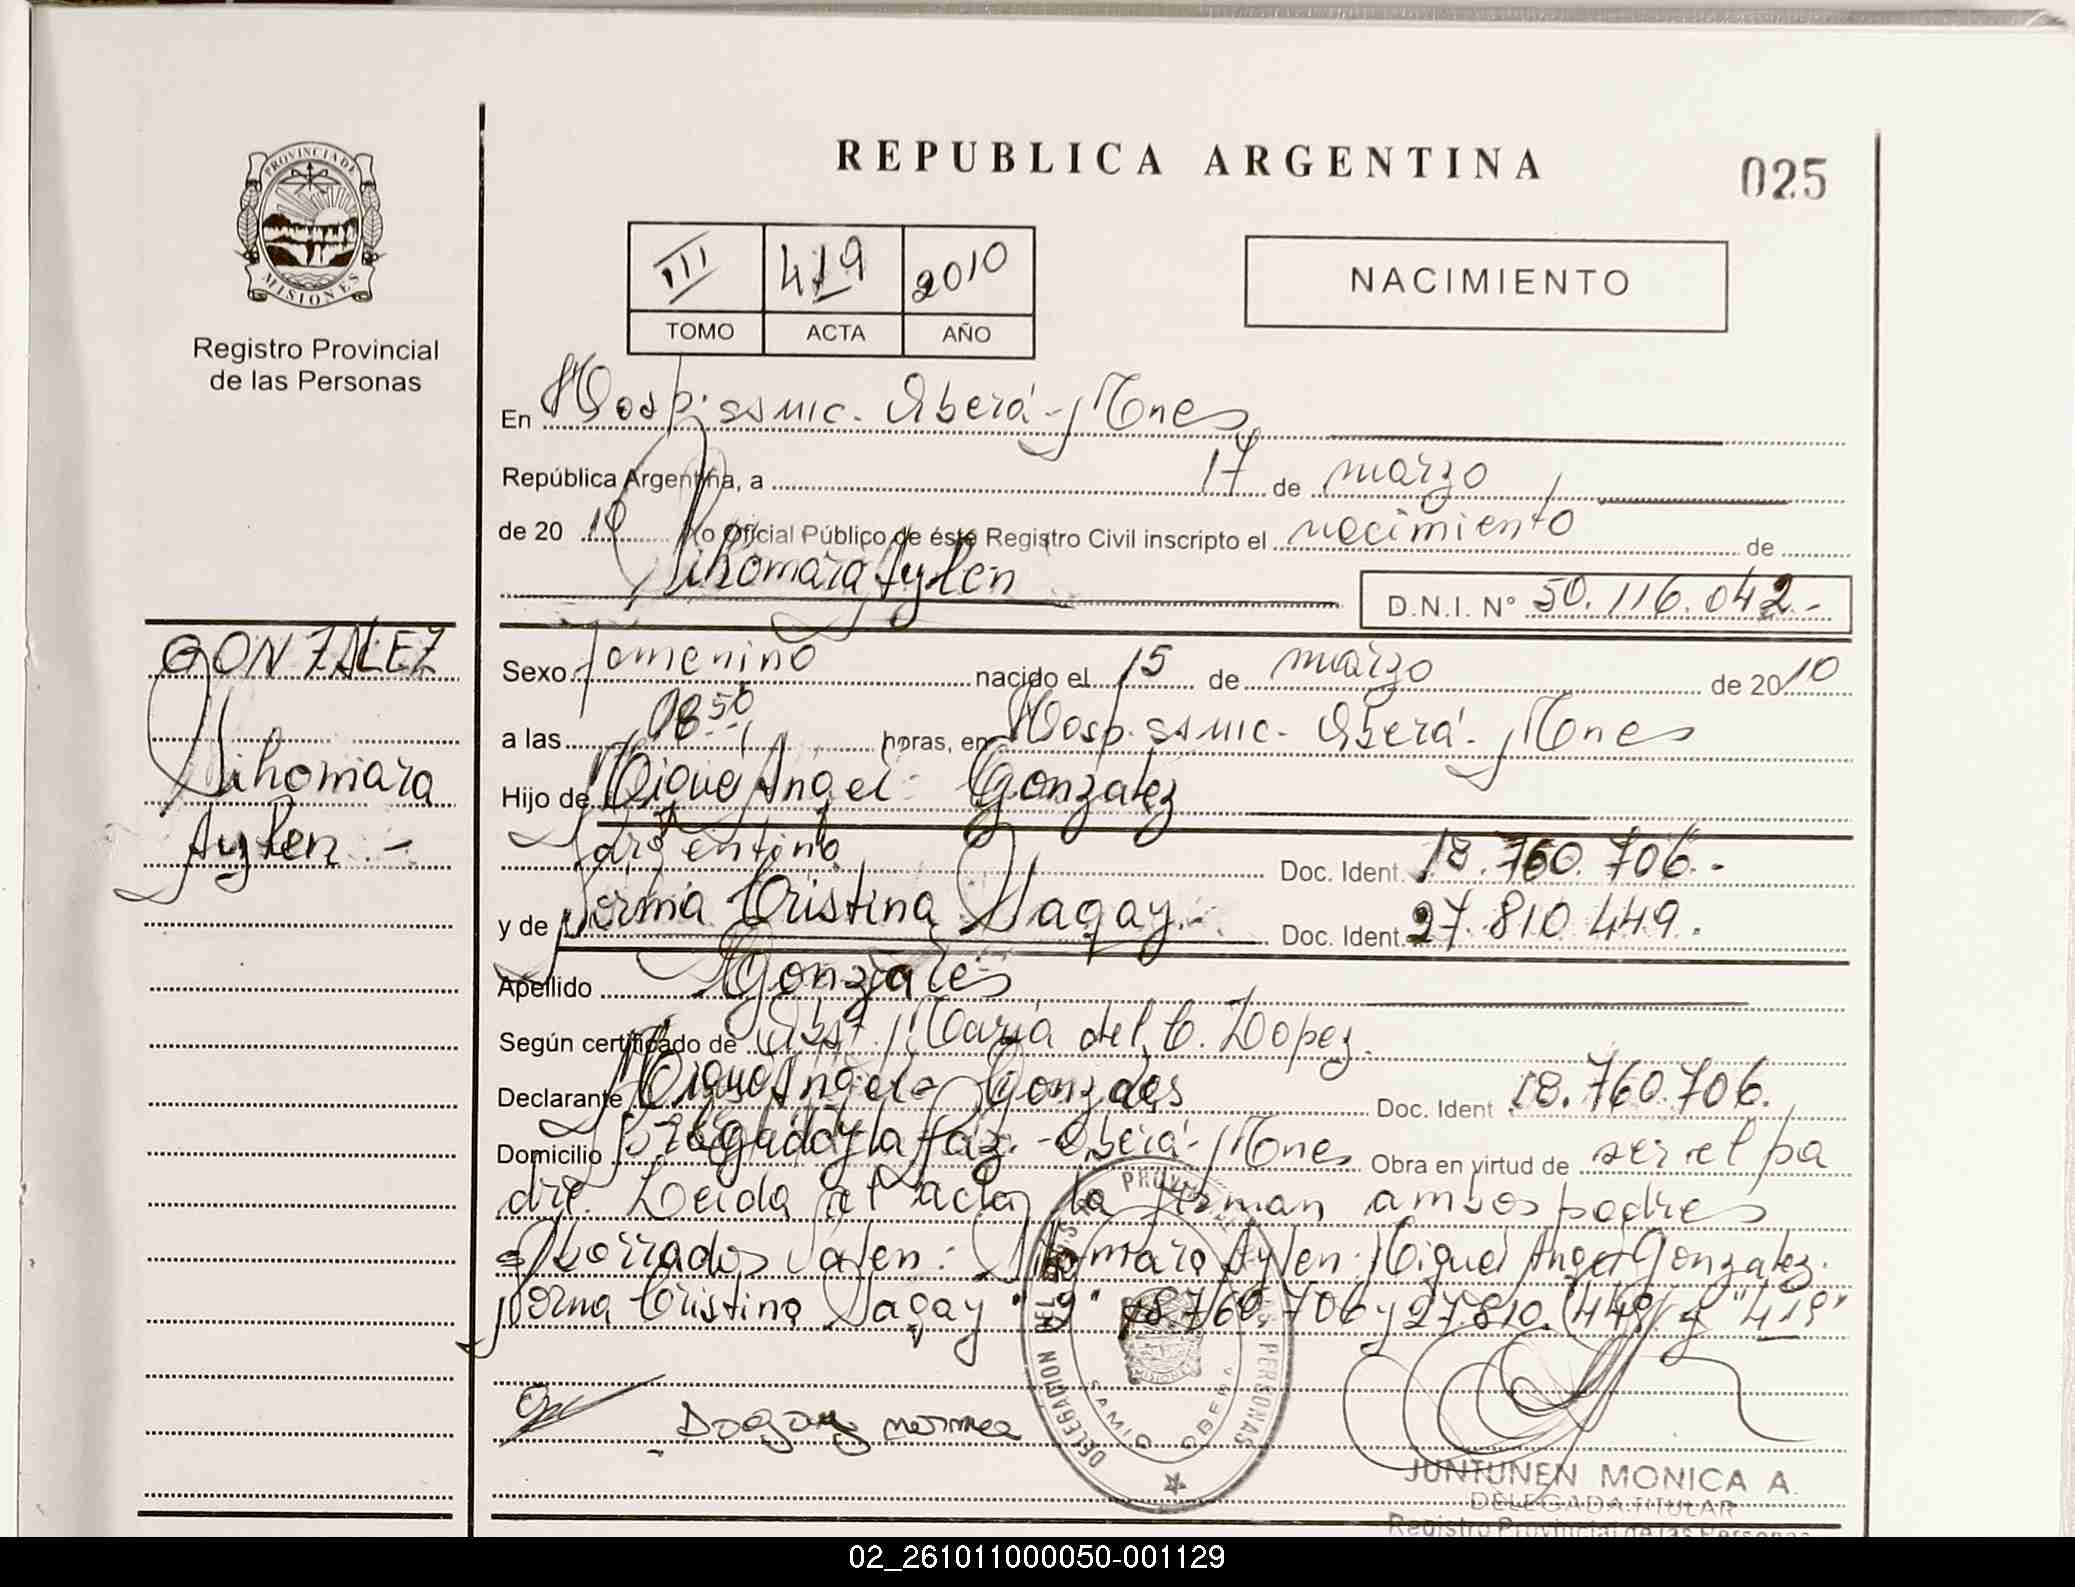 REPUBLICA ARGENTINA
025
PROVINCIA DE MISIONES
Registro Provincial
de las Personas
III 419 2010
TOMO ACTA AÑO
NACIMIENTO
En Hosp. ssmic. Oberá - Mnes
República Argentina, a 17 de marzo
de 20 10 Yo Oficial Público de éste Registro Civil inscripto el nacimiento de
Sihomara Aylen
D.N.I. N° 50.116.042.-
GONZALEZ
Sihomara
Aylen.-
Sexo femenino nacido el 15 de marzo de 20 10
a las 08 50 horas, en Hosp. ssmic. Oberá - Mnes
Hijo de Miguel Angel Gonzalez
argentino Doc. Ident. 18.760.706.-
y de Norma Cristina Doc. Ident. 27.810.449.
Apellido Gonzales
Según certificado de Obst. Maria del C. Lopez.
Declarante Miguel Angel Gonzales Doc. Ident 18.760.706.
Domicilio la Paz - Oberá - Mnes Obra en virtud de ser el pa
dre. Leida el acta la firman ambos padres
borrados Valen: Sihomara Aylen: Miguel Angel Gonzalez.
Norma Cristina "19" 18.760.706 y 27.810.449 y "419"
norma
DELEGACION DEL REGISTRO PROVINCIAL PERSONAS
SAMIC OBERA
MISIONES
JUNTUNEN MONICA A.
DELEGADA TITULAR
Registro Provincial de las Personas
02_261011000050-001129